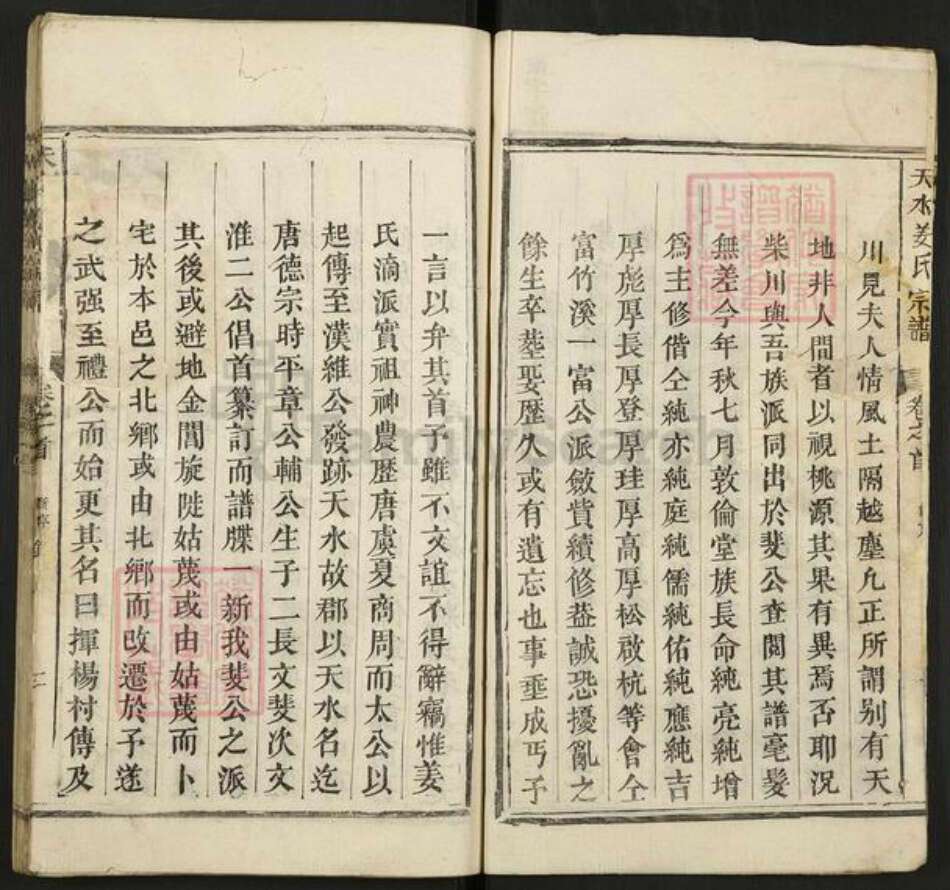 天水姜氏宗譜
卷之首
川見夫人情風土隔越塵凡正所謂别有天
地非人間者以視桃源其果有異焉否耶況
柴川與吾族派同出於斐公查閱其譜毫髮
無差今年秋七月敦倫堂族長命純亮純增
爲主修偕仝純亦純庭純儒純佑純應純吉
厚彪厚長厚登厚珪厚高厚松啟杭等會仝
富竹溪一富公派斂貲續修葢誠恐擾亂之
餘生卒塟娶歷久或有遺忘也事垂成丐予
一言以弁其首予雖不文誼不得辭竊惟姜
氏滴派實祖神農歷唐虞夏商周而太公以
起傳至漢維公發跡天水故郡以天水名迄
唐德宗時平章公輔公生子二長文斐次文
淮二公倡首纂訂而譜牒一新我斐公之派
其後或避地金閶旋陡姑蔑或由姑蔑而卜
宅於本邑之北鄉或由北鄉而改遷於予遂
之武强至禮公而始更其名曰揮楊村傳及
卷之首